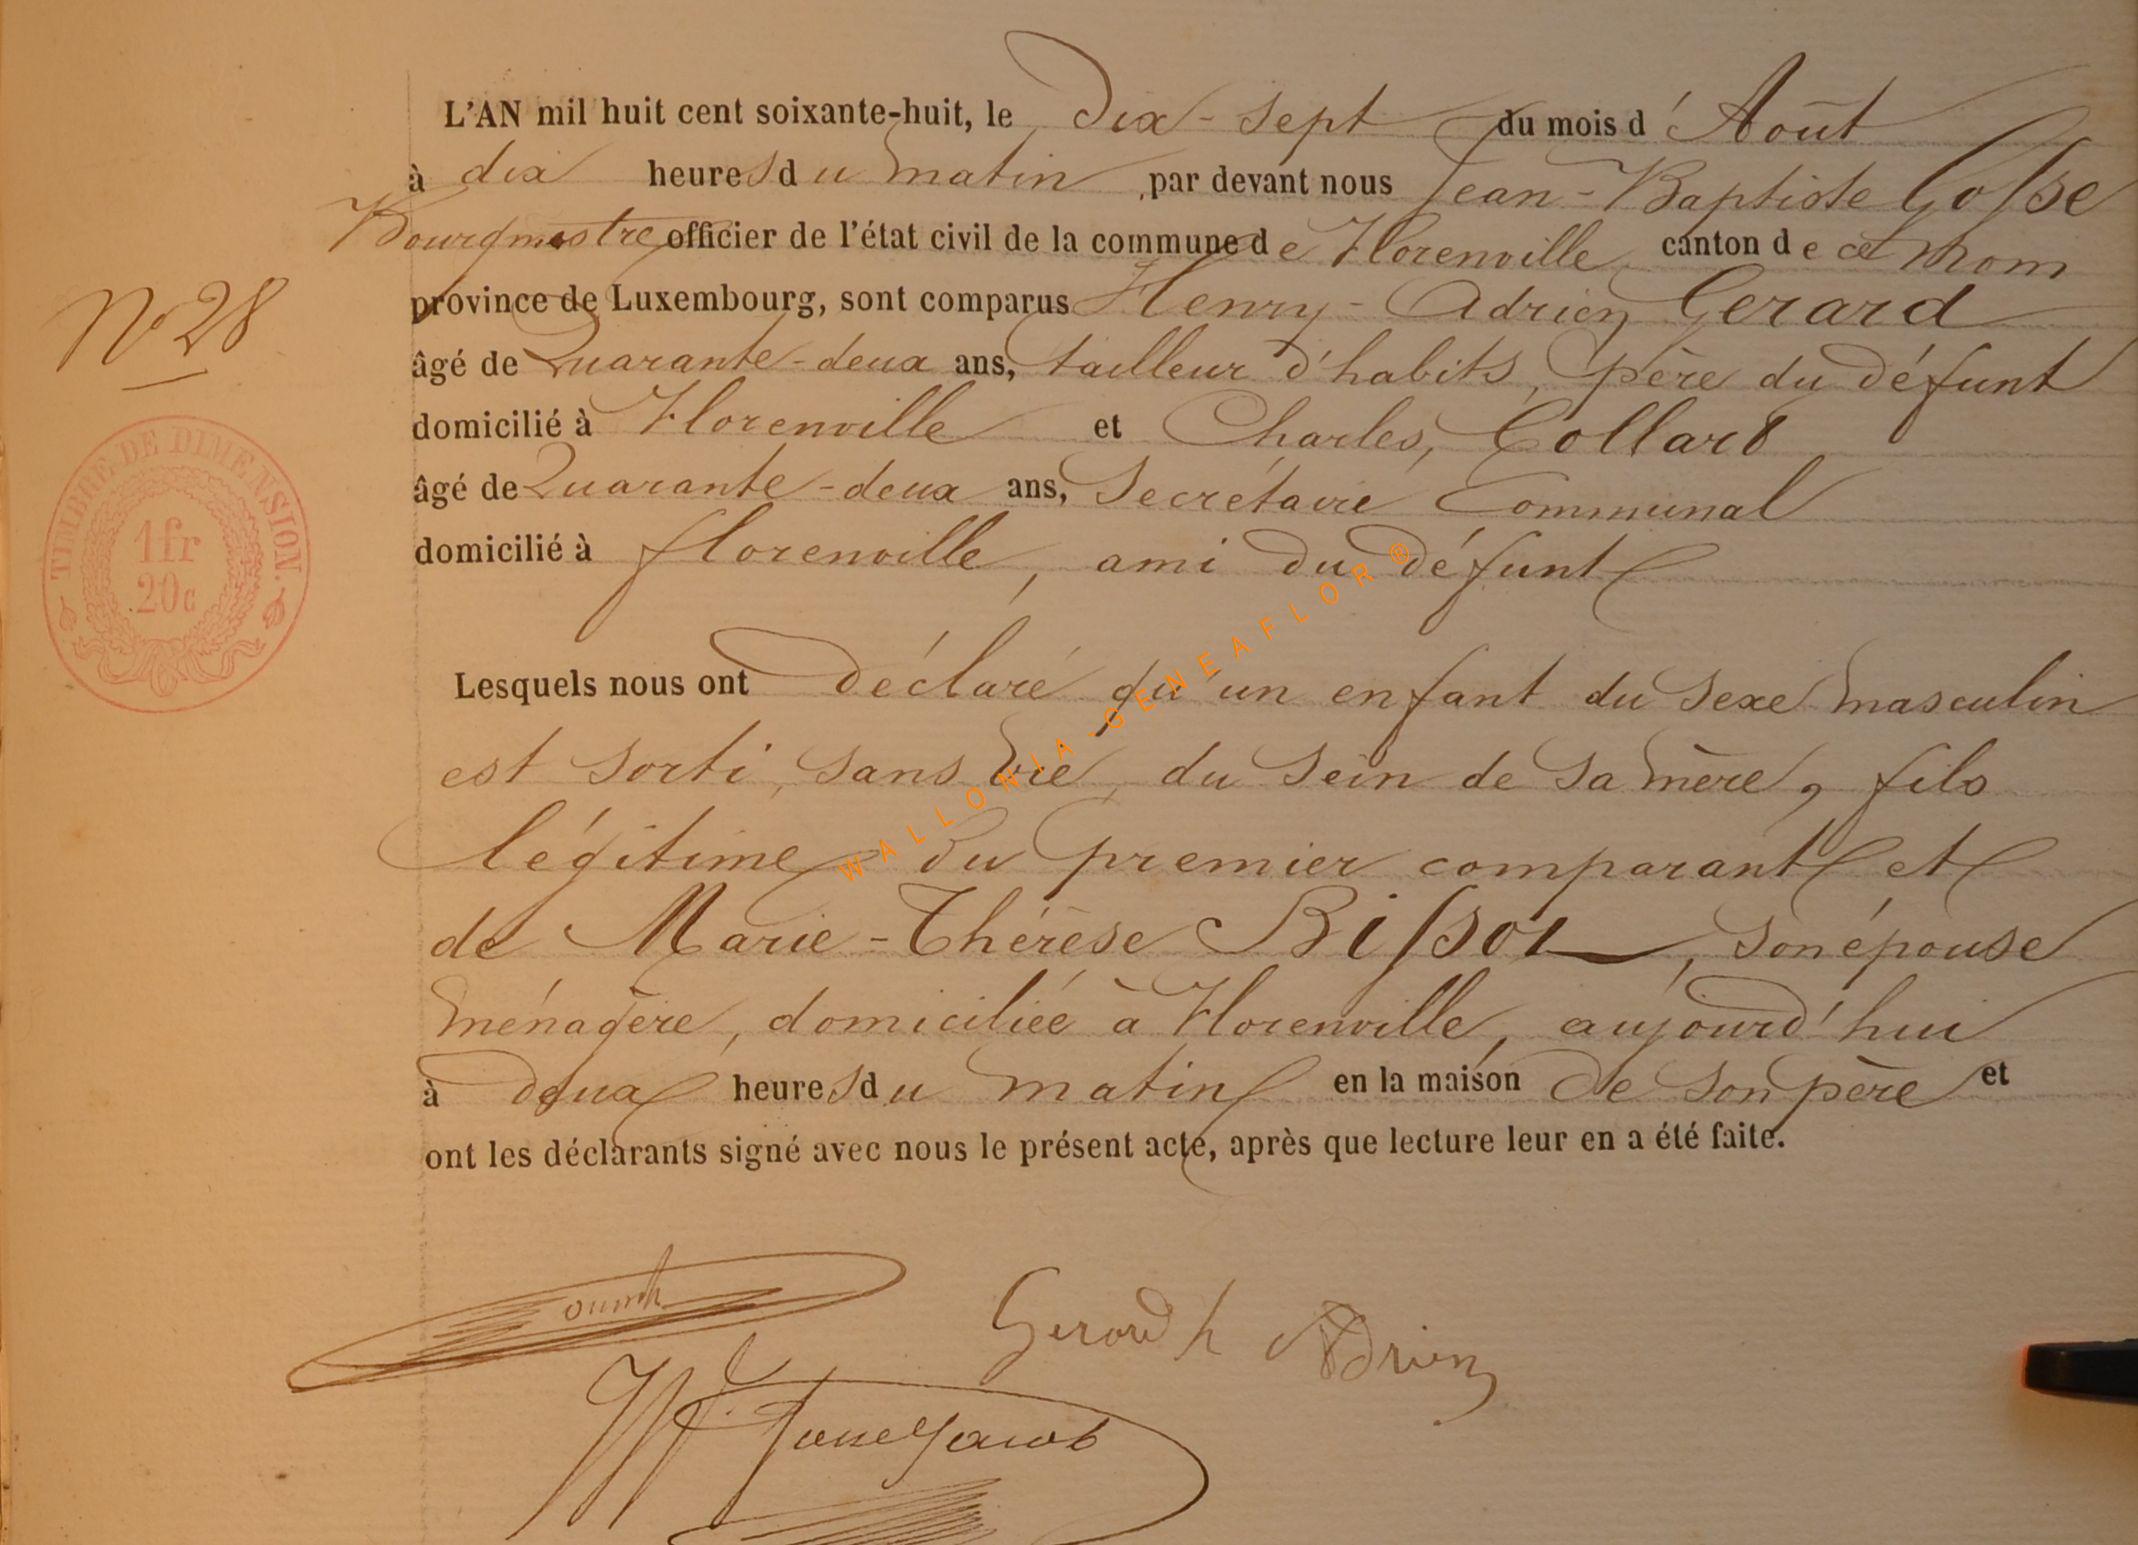 L'AN mil huit cent soixante-huit, le Dix-Sept du mois d'Août
à dix heures du matin par devant nous Jean-Baptiste Gosse
Bourgmestre officier de l'état civil de la commune de Florenville canton de ce nom
province de Luxembourg, sont comparus Henry-Adrien Gerard
N° 28
âgé de Quarante-deux ans, tailleur d'habits, père du défunt
domicilié à Florenville et Charles, Collard
âgé de Quarante-deux ans, Secrétaire Communal
domicilié à florenville, ami du défunt
TIMBRE DE DIMENSION.
1fr
20c
Lesquels nous ont déclaré qu'un enfant du Sexe masculin
est sorti, sans vie, du sein de sa mère, fils
légitime du premier comparant et
de Marie-Thérèse Bissot, son épouse
ménagère, domiciliée à Florenville, aujourd'hui
à deux heures du matin en la maison de son père et
ont les déclarants signé avec nous le présent acte, après que lecture leur en a été faite.
Gerard h Adrien
WALLONIA-GENEAFLOR®